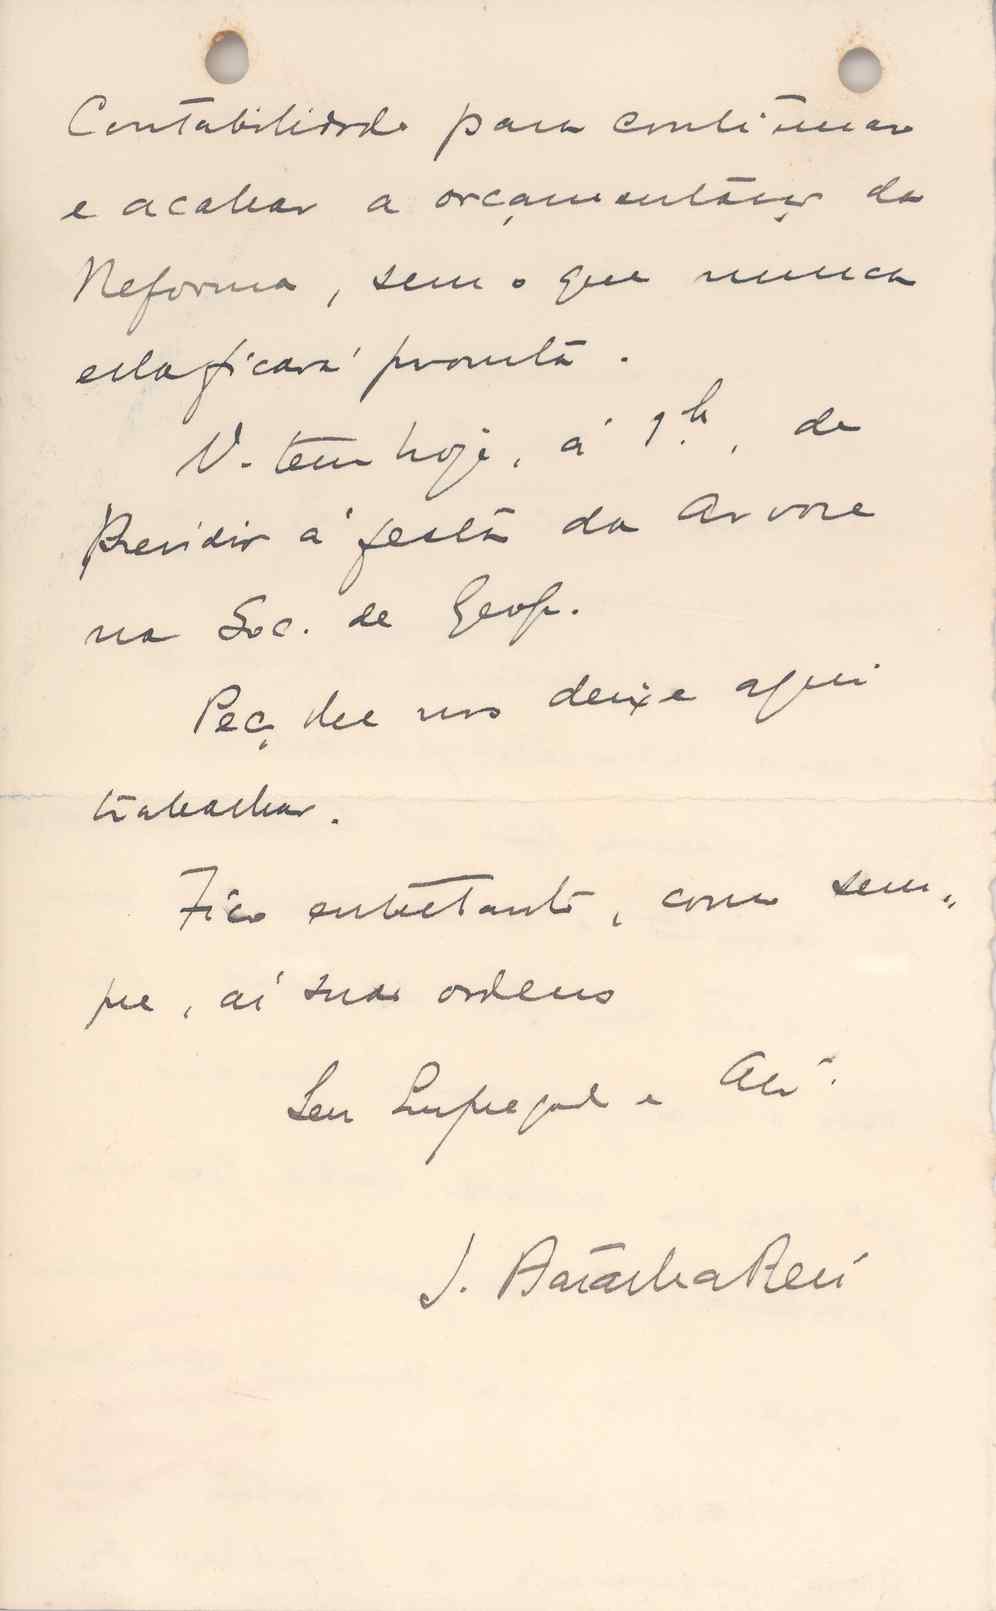 Contabilidade para continuar
e acabar a orçamentação da
Reforma, sem o que nunca
ella ficará prompta.
V. tem hoje, á 1h, de
Presidir á festa da Arvore
na Soc. de Geog.
Peço lhe nos deixe aqui
trabalhar.
Fico entretanto, como sem-
pre, ás suas ordens
Seu Empregado e Atº.
J. Batalha Reis